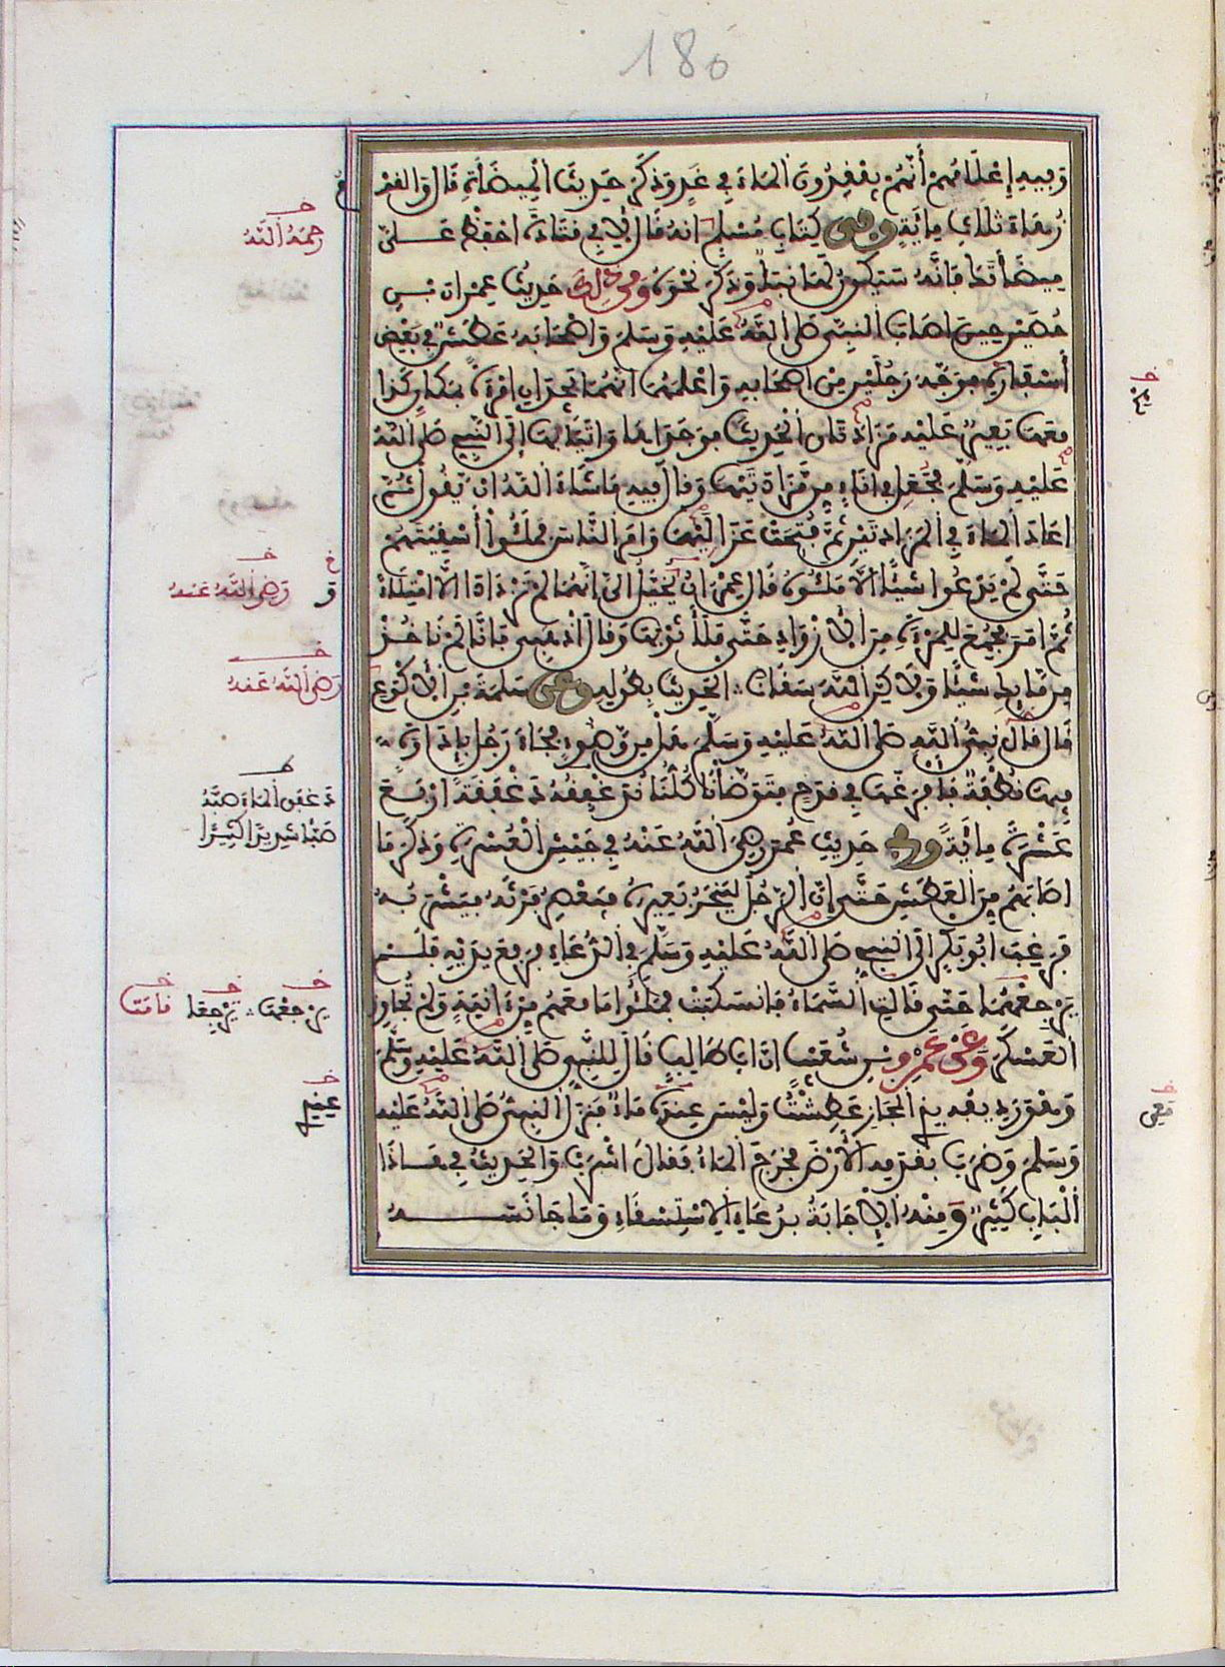 180
وَفِيهِ إِعْلَامُهُمْ أَنَّهُمْ يَفْقِدُونَ الْمَاءَ فِي غَدٍ وَذَكَرَ حَدِيثَ الْمِيضَأَةِ قَالَ وَالْقَوْ
زُهَاءَ ثَلَاثِ مِائَةٍ وَفِي كِتَابِ مُسْلِمٍ أَنَّهُ قَالَ لِأَبِي قَتَادَةَ احْفَظْ عَلَيَّ
مِيضَأَتَكَ فَإِنَّهُ سَيَكُونُ لَهَا نَبَأٌ وَذَكَرَ نَحْوَهُ وَمِنْ ذَلِكَ حَدِيثُ عِمْرَانَ بْنِ
حُصَيْنٍ حِينَ أَصَابَ النَّبِيَّ صَلَّى اللَّهُ عَلَيْهِ وَسَلَّمَ وَأَصْحَابَهُ عَطَشٌ فِي بَعْضِ
أَسْفَارِهِ فَوَجَّهَ رَجُلَيْنِ مِنْ أَصْحَابِهِ وَأَعْلَمَهُمَا أَنَّهُمَا يَجِدَانِ امْرَأَةً بِمَكَانِ كَذَا
مَعَهَا بَعِيرٌ عَلَيْهِ مَزَادَتَانِ الْحَدِيثَ فَوَجَدَاهَا وَأَتَيَا بِهَا إِلَى النَّبِيِّ صَلَّى اللَّهُ
عَلَيْهِ وَسَلَّمَ فَجَعَلَ فِي إِنَاءٍ مِنْ مَزَادَتَيْهَا وَقَالَ فِيهِ مَا شَاءَ اللَّهُ أَنْ يَقُولَ ثُمَّ
أَعَادَ الْمَاءَ فِي الْمَزَادَتَيْنِ ثُمَّ فُتِحَتْ عَزَالِيهَا وَأَمَرَ النَّاسَ فَمَلَئُوا أَسْقِيَتَهُمْ
حَتَّى لَمْ يَدَعُوا شَيْئًا إِلَّا مَلَئُوهُ قَالَ عِمْرَانُ يُخَيَّلُ إِلَيَّ أَنَّهُمَا لَمْ تَزْدَادَا إِلَّا امْتِلَاءً
ثُمَّ أَمَرَ فَجُمِعَ لِلْمَرْأَةِ مِنَ الْأَزْوَادِ حَتَّى مَلَأَ ثَوْبَهَا وَقَالَ اذْهَبِي فَإِنَّا لَمْ نَأْخُذْ
مِنْ مَائِكِ شَيْئًا وَلَكِنَّ اللَّهَ سَقَانَا الْحَدِيثَ بِطُولِهِ وَعَنْ سَلَمَةَ بْنِ الْأَكْوَعِ
قَالَ قَالَ نَبِيُّ اللَّهِ صَلَّى اللَّهُ عَلَيْهِ وَسَلَّمَ هَلْ مِنْ وَضُوءٍ فَجَاءَ رَجُلٌ بِإِدَاوَةٍ
فِيهَا نُطْفَةٌ فَأَفْرَغَهَا فِي قَدَحٍ فَتَوَضَّأْنَا كُلُّنَا نُدَغْفِقُهُ دَغْفَقَةً أَرْبَعَ
عَشْرَةَ مِائَةً وَفِي حَدِيثِ عُمَرَ رَضِيَ اللَّهُ عَنْهُ فِي جَيْشِ الْعُسْرَةِ وَذَكَرَ مَا
أَصَابَهُمْ مِنَ الْعَطَشِ حَتَّى إِنَّ الرَّجُلَ لَيَنْحَرُ بَعِيرَهُ فَيَعْصِرُ فَرْثَهُ فَيَشْرَبُهُ
فَرَغِبَ أَبُو بَكْرٍ إِلَى النَّبِيِّ صَلَّى اللَّهُ عَلَيْهِ وَسَلَّمَ فِي الدُّعَاءِ فَرَفَعَ يَدَيْهِ فَلَمْ
يَرْجِعْهُمَا حَتَّى قَالَتِ السَّمَاءُ فَانْسَكَبَتْ فَمَلَئُوا مَا مَعَهُمْ مِنْ آنِيَةٍ وَلَمْ تُجَاوِزِ
الْعَسْكَرَ وَعَنْ عَمْرِو بْنِ شُعَيْبٍ أَنَّ أَبَا طَالِبٍ قَالَ لِلنَّبِيِّ صَلَّى اللَّهُ عَلَيْهِ وَسَلَّمَ
وَهُوَ رَدِيفُهُ بِذِي الْمَجَازِ عَطِشْتُ وَلَيْسَ عِنْدِي مَاءٌ فَنَزَلَ النَّبِيُّ صَلَّى اللَّهُ عَلَيْهِ
وَسَلَّمَ وَضَرَبَ بِقَدَمِهِ الْأَرْضَ فَخَرَجَ الْمَاءُ فَقَالَ اشْرَبْ وَالْحَدِيثُ فِي هَذَا
الْبَابِ كَثِيرٌ وَمِنْهُ الْإِجَابَةُ بِدُعَاءِ الِاسْتِسْقَاءِ وَمَا جَانَسَهُ
رَحِمَهُ اللَّهُ
وَ رَضِيَ اللَّهُ عَنْهُ
رَضِيَ اللَّهُ عَنْهُ
دَغْفَقَ الْمَاءَ صَبَّهُ
صَبًّا شَدِيدًا كَثِيرًا
يَرْجِعْهَا يَرْجِعَا قَامَتْ